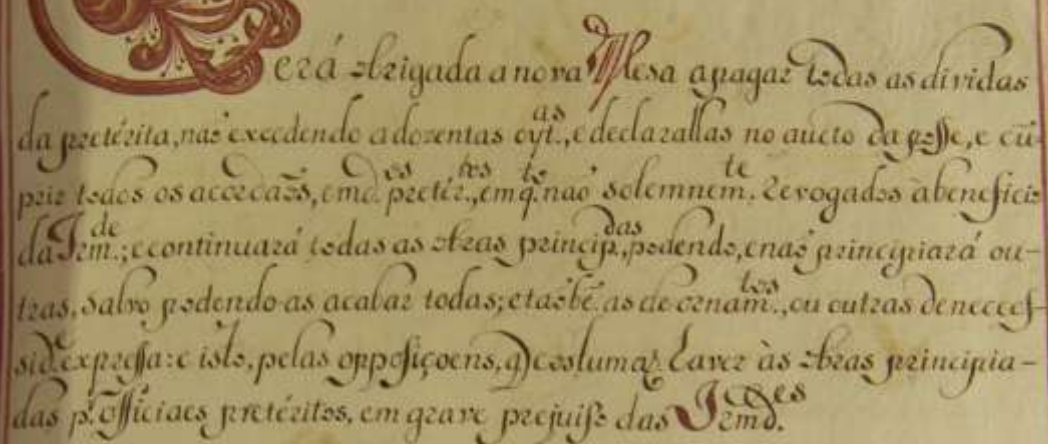 Será obrigada a nova Mesa a pagar todas as dividas
da pretérita, naõ excedendo a dozentas oyt.as, e declarallas no aucto da posse, e cũ-
prir todos os acordaõs, e md.os pretér.tos, em q̃ to naõ solemnem.te revogados à beneficio
da Irm.de; e continuará todas as obras princip.das, podendo, e naõ principiará ou-
tras, salvo podendo-as acabar todas; e taõbẽ as de ornam.tos, ou outras de necces-
sid.e expressa: e isto, pelas opposiçoens, q̃ costumaõ haver às obras principia-
das p.r officiaes pretéritos, em grave prejuiso das Irmd.es